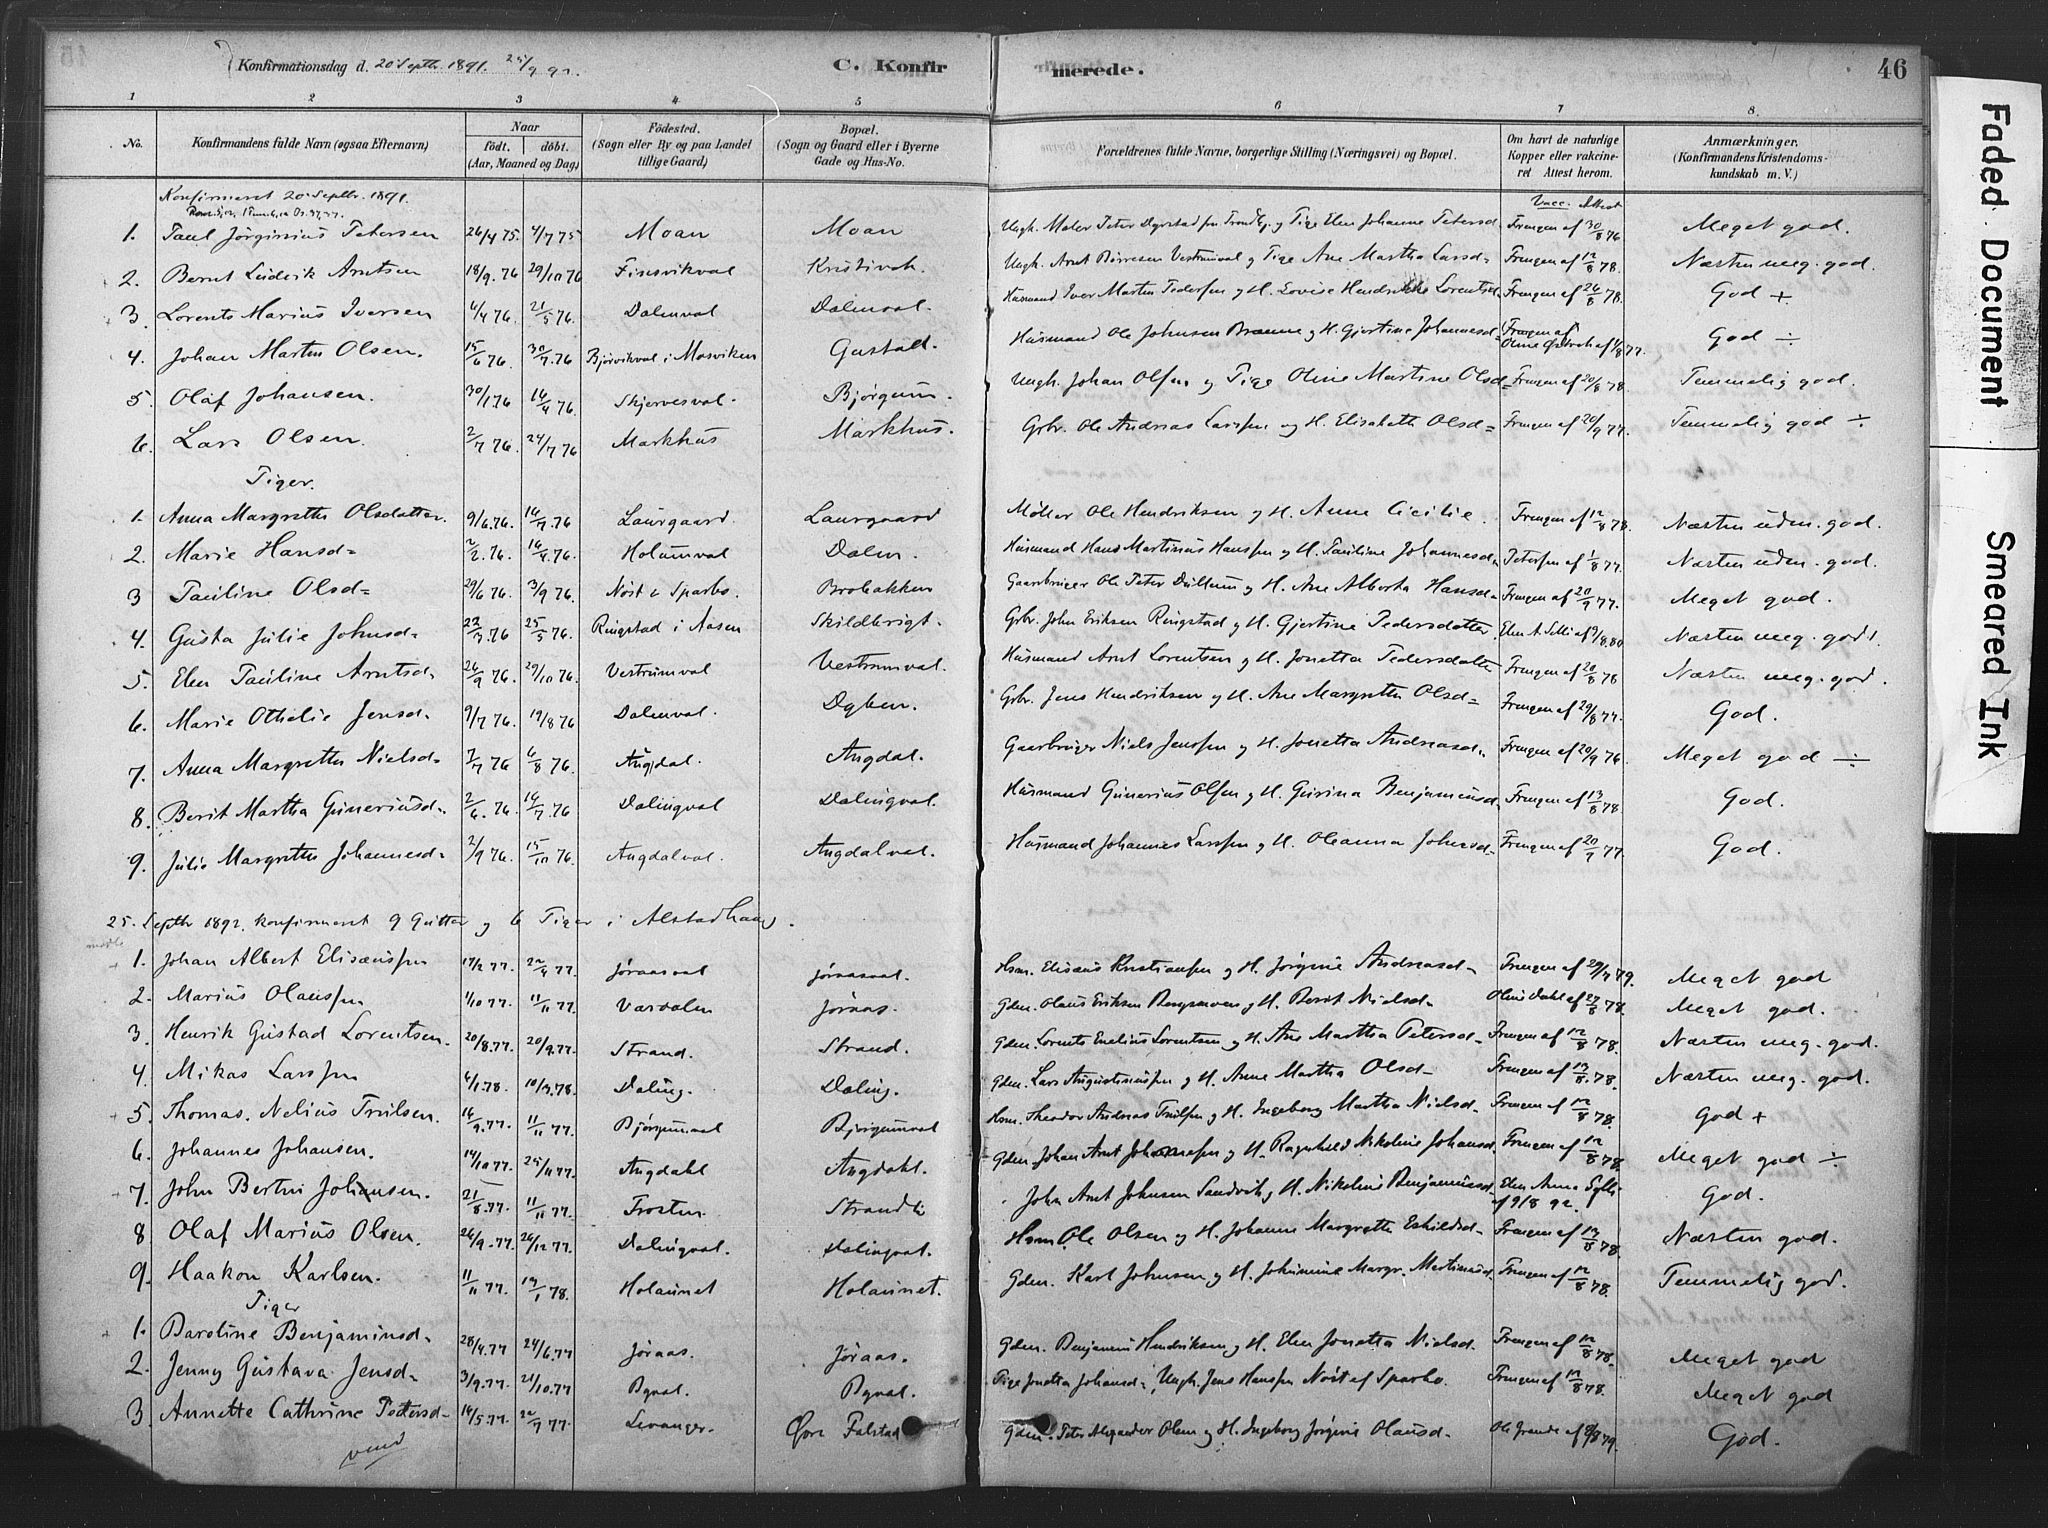 Konfirmationsdag d. 20 Septbr. 1891. 25/9 92. C. Konfirmerede. 46
1 2 3 4 5 6 7 8.
No. Konfirmandens fulde Navn (ogsaa Efternavn) Naar födt. döbt. (Aar, Maaned og Dag) Födested. (Sogn eller By og paa Landet tillige Gaard) Bopæl. (Sogn og Gaard eller i Byerne Gade og Hus-No. Forældrenes fulde Navne, borgerlige Stilling (Næringsvei) og Bopæl. Om havt de naturlige Kopper eller vakcineret Attest herom. Anmærkninger. (Konfirmandens Kristendomskundskab m. V.)
Konfirmeret 20 Septbr. 1891.
Vacc. Attest
1. Paul Jörginius Petersen 26/4 75. 4/7 75 Moan Moan Ungk. Maler Peter Dyrstad fra Trondhj. og Pige Elen Johanne Petersd. Frengen af 30/8 76 Meget god.
2. Bernt Ludvik Arntsen 18/9. 76 29/10 76 Finsvikval Ungk. Arnt Vestrumval og Pige Ane Martha Larsd= Frengen af 12/8 78. Næsten meg. god.
3. Lorents Marius Iversen 4/4 76. 21/5 76. Dalenval Dalenval. Husmand Iver Martin Pedersen og H. Lovise Hendrikke Lorentsd. Frengen af 26/8 78. God +
4. Johan Martin Olsen. 15/6 76. 30/7. 76 Bjørvikval i Mosviken Gustad. Husmand Ole Johnsen Brenne og H. Gjertine Johannesd= Frengen af 1/8 77. God ÷
5. Olaf Johansen. 30/1 76 16/4 76. Skjervesval. Bjørgum. Ungk. Johan Olsen og Pige Oline Martine Olsd= Frengen af 20/8 78. Temmelig god.
6. Lars Olsen. 2/7 76. 24/7 76 Markhus Markhus. Grbr. Ole Andreas Larssen og H. Elisabeth Olsd= Frengen af 20/9 77. Temmelig god ÷
Piger.
1. Anna Margrethe Olsdatter. 9/6 76. 16/7. 76 Laurgaard. Laurgaard Møller Ole Hendriksen og H. Anne Cicilie. Frengen af 12/8 78. Næsten uden. god.
2. Marie Hansd= 2/2. 76. 16/4. 76. Holumval Dalen. Husmand Hans Martinus Hanssen og H. Pauline Johannesd= Petersen af 1/8 77. Næsten uden. god.
3 Pauline Olsd= 29/6 76. 3/9 76. Nøst i Sparbo. Brobakken Gaardbruger Ole Peter Dullum og H. Ane Alberta Hansd= Frengen af 20/9 77. Meget god.
4. Gusta Julie Johnsd= 22/3. 76 25/5 76. Ringstad i Aasen Skildbrigt. Grbr. John Eriksen Ringstad og H. Gjertine Pedersdatter. Elen A. Selli af 9/8 80 Næsten meg. god.
5. Elen Pauline Arntsd= 26/9 76. 29/10 76. Vestrumval Vestrumval. Husmand Arnt Lorentsen og H. Jonetta Pedersdatter Frengen af 20/8 78 Næsten meg. god.
6. Marie Othelie Jensd= 9/7 76. 19/8 76 Dalenval. Dyben. Grbr. Jens Hendriksen og H. Ane Margrethe Olsd= Frengen af 29/8 77. God.
7. Anna Margrethe Nielsd= 7/7 76 6/8 76. Augdal. Augdal. Gaardbruger Niels Jenssen og H. Jonetta Andreasd= Frengen af 20/9 76 Meget god ÷
8. Berit Martha Gunerinsd= 2/6. 76. 16/7. 76 Dalingval Dalingval. Husmand Gunerius Olsen og H. Gurina Benjaminsd= Frengen af 13/8 78. God.
9. Julie Margrethe Johannesd= 2/9 76. 15/10 76. Augdalval. Augdalval. Husmand Johannes Larssen og H. Oleanna Johnsd= Frengen af 20/9 77. God.
25. Septbr 1892. konfirmeret 9 Gutter og 6 Piger i Alstadhaug.
1. Johan Albert Elisæussen 17/2 77. 22/4 77. Jøraasval Jøraasval. Hsm. Elisæus Kristiansen og H. Jørgine Andreasd= Frengen af 29/7 79. Meget god
2. Marius Olaussen 1/10 77. 11/11 77. Vardalen Jøraas. Gdm. Olaus Eriksen og H. Berit Nielsd= Oline Dahl af 27/8 78. Meget god.
3. Henrik Gustad Lorentsen. 20/8. 77. 20/9. 77. Strand. Strand. Gdm. Lorents Emelius Lorentsen og H. Ane Martha Petersd= Frengen af 12/8 78. Næsten meg. god.
4. Mikas Larssen 4/1. 78. 10/3. 78. Daling. Daling. Gdm. Lars Augustinussen og H. Anne Martha Olsd= Frengen af 13/8. 78. Næsten meg. god.
5. Thomas. Nelius Truilsen. 16/9. 77. 11/11 77. Bjørgumval Bjørgumval Hsm. Theodor Andreas Truilsen og H. Ingeborg Martha Nielsd= Frengen af 12/8 78. God +
6. Johannes Johansen. 14/10 77. 25/11 77. Augdahl Augdahl. Gdm. Johan Arnt Johannesen og H. Ragnhild Nikoline Johansd. Frengen af 12/8 78. Meget god ÷
7. John Bertin Johansen. 21/8. 77. 11/11 77. Frosten Strandli John Arnt Johnsen Sandvik og H. Nikoline Benjaminsd= Elen Anna Sylli af 9/8 92. God.
8 Olaf Marius Olsen. 26/9. 77. 26/12 77. Dalingval. Dalingval. Hsm. Ole Olsen og H. Johanne Margrethe Eskildsd= Frengen af 13/8 78. Næsten god.
9. Haakon Karlsen. 11/11 77. 13/1 78. Holaunet Holaunet. Gdm. Karl Johnsen og H. Johannine Margr. Martinusd. Frengen af 12/8 78. Temmelig god.
Piger
1. Paroline Benjaminsd= 28/4. 77 24/6. 77 Jøraas. Jøraas. Gdm. Benjamin Hendriksen og H. Elen Jonetta Nielsd. Frengen af 12/8 78. Meget god
2. Jenny Gustava Jensd= 3/9. 77. 21/10. 77 Byval. Byval. Pige Jonetta Johansd=, Ungk. Jens Hanssen Nøst af Sparbo. Frengen af 12/8 78. Meget god
3. Annette Cathrine Petersd= 14/5. 77. 22/7 77. Levanger. Øvre Falstad Gdm. Peter Alexander Olsen og H. Ingeborg Jørgine Olausd= Ole Grande af 8/8 79. God.
vend
Faded Document Smeared Ink